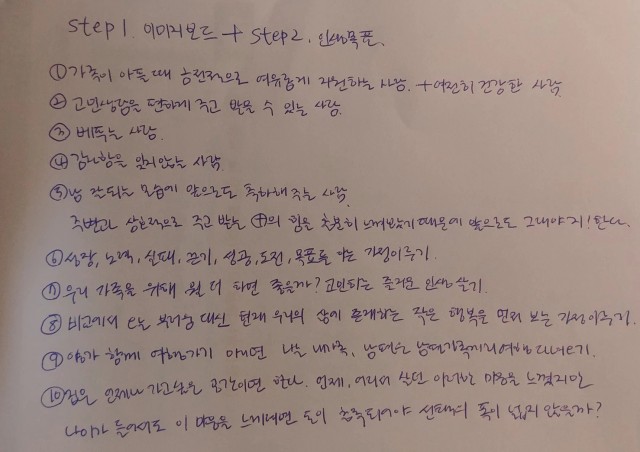 step1. 이미지보드 + step2. 인생목표.
① 가족이 아플 때 금전적으로 여유롭게 지원하는 사람. + 여전히 건강한 사람.
② 고민상담을 편하게 주고 받을 수 있는 사람.
③ 베푸는 사람.
④ 감사함을 잊지않는 사람.
⑤ 남 잘되는 모습에 앞으로도 축하해 주는 사람.
주변과 상호적으로 주고 받는 의 힘을 충분히 느껴봤기 때문에 앞으로도 그래야지! 한다.
⑥ 성장, 노력, 실패, 끈기, 성공, 도전, 목표를 하는 가정이루기.
⑦ 우리 가족을 위해 뭘 더 하면 좋을까? 고민하는 즐거운 인생 살기.
⑧ 비교에서 오는 부러움 대신 현재 우리의 삶에 존재하는 작은 행복을 먼저 보는 가정이루기.
⑨ 함께 여행가기 아니면 나는 내가족, 남편은 남편가족끼리 여행 다녀오기.
⑩ 집은 언제나 가고싶은 공간이면 한다. 언제, 어디서 살던 이러한 마음을 느꼈지만
나이가 들어서도 이 마음을 느끼려면 돈이 충족되어야 선택의 폭이 넓지 않을까?